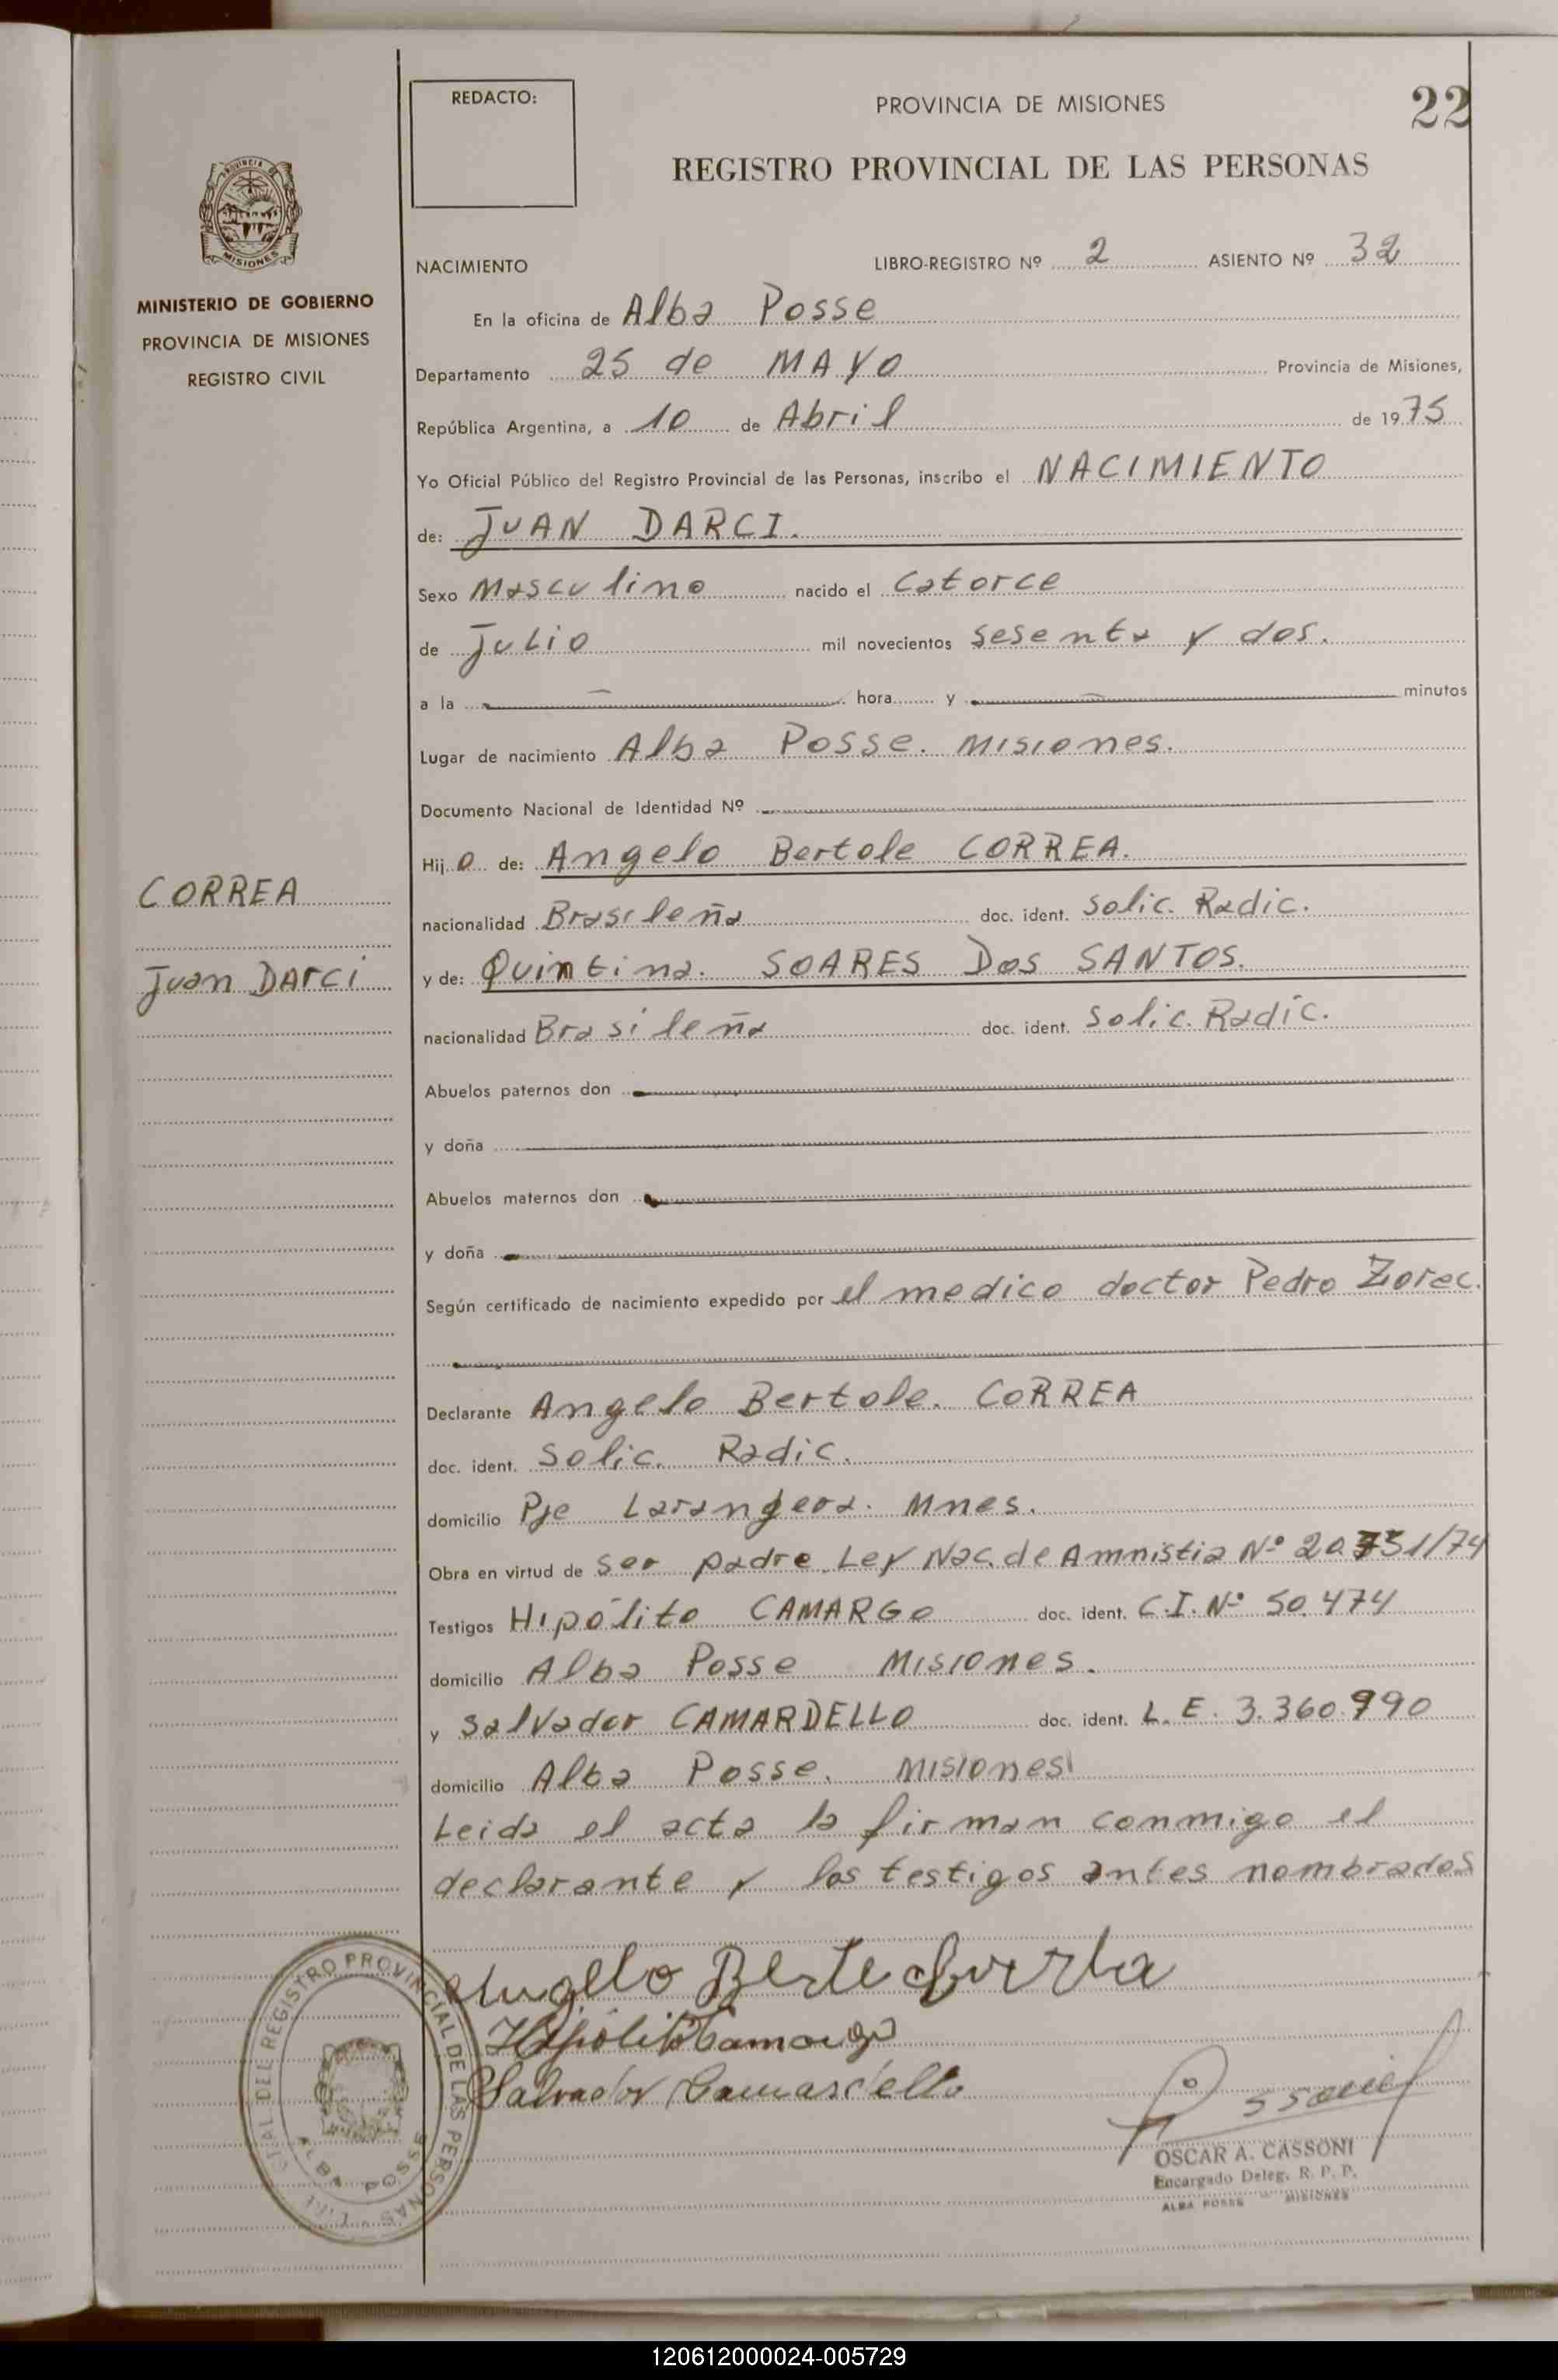 REDACTO:
PROVINCIA DE MISIONES
22
REGISTRO PROVINCIAL DE LAS PERSONAS
PROVINCIA
MISIONES
MINISTERIO DE GOBIERNO
PROVINCIA DE MISIONES
REGISTRO CIVIL
NACIMIENTO LIBRO-REGISTRO Nº 2 ASIENTO Nº 32
En la oficina de Alba Posse
Departamento 25 de MAYO Provincia de Misiones,
República Argentina, a 10 de Abril de 1975
Yo Oficial Público del Registro Provincial de las Personas, inscribo el NACIMIENTO
de: JUAN DARCI.
Sexo Masculino nacido el Catorce
de Julio mil novecientos sesenta y dos.
a la hora y minutos
Lugar de nacimiento Alba Posse. Misiones.
Documento Nacional de Identidad Nº
Hijo de: Angelo Bertole CORREA.
CORREA
nacionalidad Brasileña doc. ident. Solic. Radic.
Juan Darci
y de: Quintina. SOARES Dos SANTOS.
nacionalidad Brasileña doc. ident. Solic. Radic.
Abuelos paternos don
y doña
Abuelos maternos don
y doña
Según certificado de nacimiento expedido por el medico doctor Pedro Zorec.
Declarante Angelo Bertole. CORREA
doc. ident. Solic. Radic.
domicilio Pje Larangera. Mnes.
Obra en virtud de ser padre. Ley Nac. de Amnistia Nº 20.751/74
Testigos Hipólito CAMARGO doc. ident. C.I. Nº 50.474
domicilio Alba Posse Misiones.
y Salvador CAMARDELLO doc. ident. L. E. 3.360.990
domicilio Alba Posse. Misiones
Leida el acta la firman conmigo el
declarante y los testigos antes nombrados
Angelo Berte
Hipólito Camargo
Salvador Camardello
REGISTRO PROVINCIAL DE LAS PERSONAS
ALBA POSSE
OSCAR A. CASSONI
Encargado Deleg. R. P. P.
ALBA POSSE - MISIONES
120612000024-005729